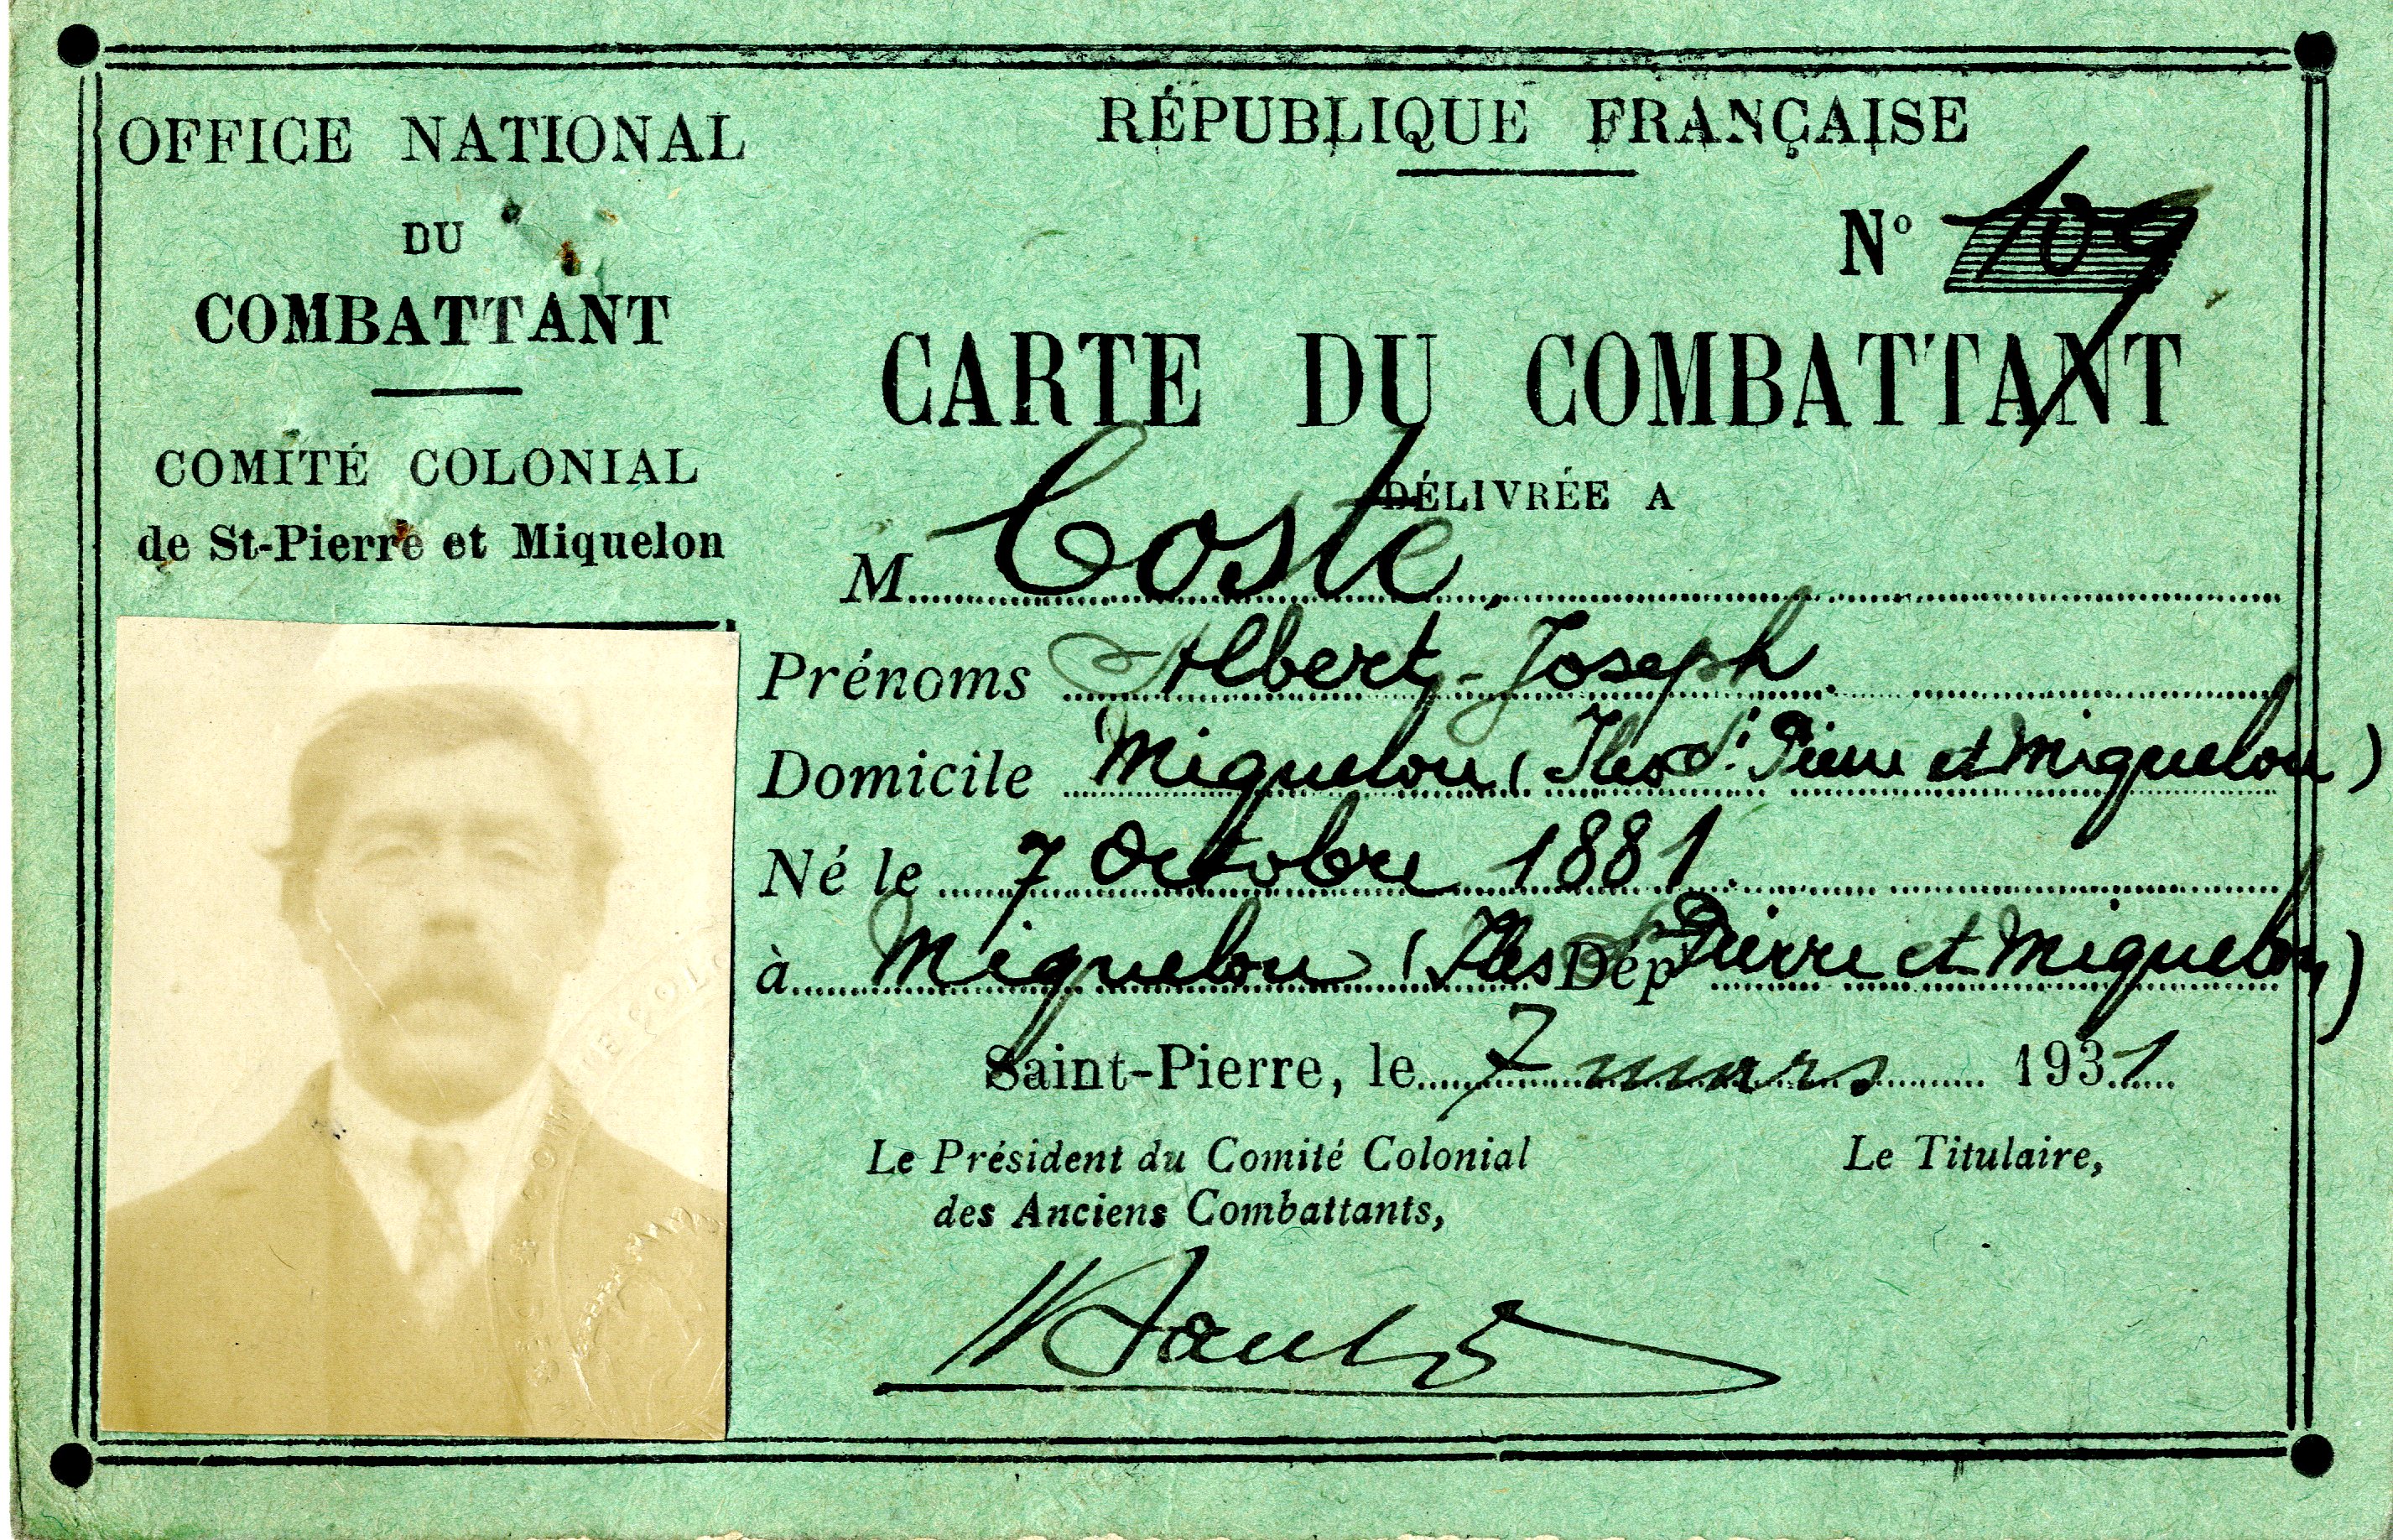 OFFICE NATIONAL
DU
COMBATTANT
COMITÉ COLONIAL
de St-Pierre et Miquelon
RÉPUBLIQUE FRANÇAISE
Nº 109
CARTE DU COMBATTANT
DÉLIVRÉE A
M. Coste,
Prénoms Albert-Joseph.
Domicile Miquelon (Iles St Pierre et Miquelon)
Né le 7 Octobre 1881.
à Miquelon (Iles Dépt St Pierre et Miquelon)
Saint-Pierre, le 7 mars 1931
Le Président du Comité Colonial
des Anciens Combattants,
Le Titulaire,